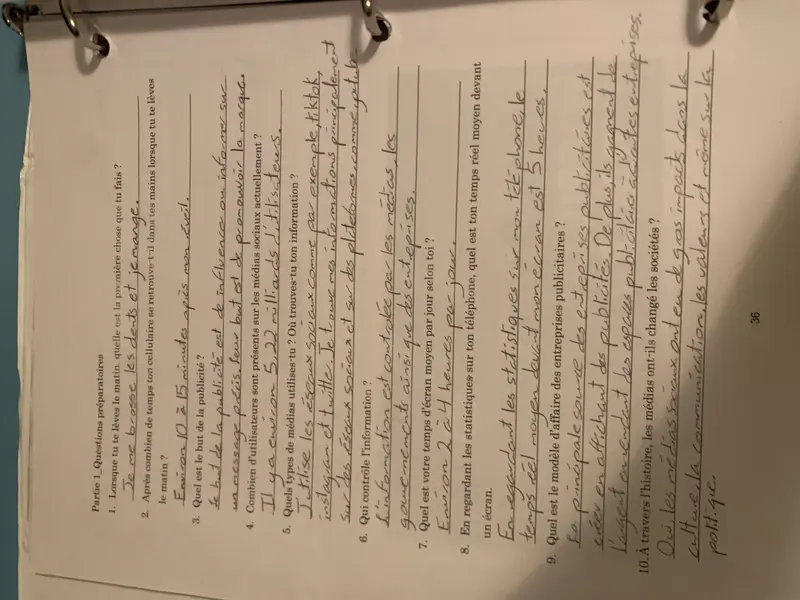 Partie 1_Questions préparatoires
1. Lorsque tu te lèves le matin, quelle est la première chose que tu fais ?
Je me brosse les dents et je mange.
2. Après combien de temps ton cellulaire se retrouve-t-il dans tes mains lorsque tu te lèves
le matin ?
Environ 10 à 15 minutes après mon éveil.
3. Quel est le but de la publicité ?
Le but de la publicité est de influence ou informe sur
un message précis, leur but est de promouvoir la marque.
4. Combien d'utilisateurs sont présents sur les médias sociaux actuellement ?
Il y a environ 5,22 milliards d'utilisateurs.
5. Quels types de médias utilises-tu ? Où trouves-tu ton information ?
J'utilise les éseaux sociaux comme par exemple, tiktok,
instagram et twitter. Je trouve mes informations principalement
sur des éseaux sociaux et sur des plateformes, comme youtube.
6. Qui contrôle l'information ?
L'information est contrôlée par les médias, les
gouvernements ainsi que des entreprises.
7. Quel est votre temps d'écran moyen par jour selon toi ?
Environ 2 à 4 heures par jour.
8. En regardant les statistiques sur ton téléphone, quel est ton temps réel moyen devant
un écran.
En regardant les statistiques sur mon téléphone, le
temps réel moyen devant mon écran est 5 heures.
9. Quel est le modèle d'affaire des entreprises publicitaires ?
La principale source des entreprises publicitaires est
créer en affichant des publicités. De plus, ils gagnent de
l'argent en vendant les espaces publicitaire à d'autes entreprises.
10. À travers l'histoire, les médias ont-ils changé les sociétés ?
Oui, les médias sociaux ont eu de gros impacts dans la
culture, la communication, les valeurs et même sur la
politique.
36